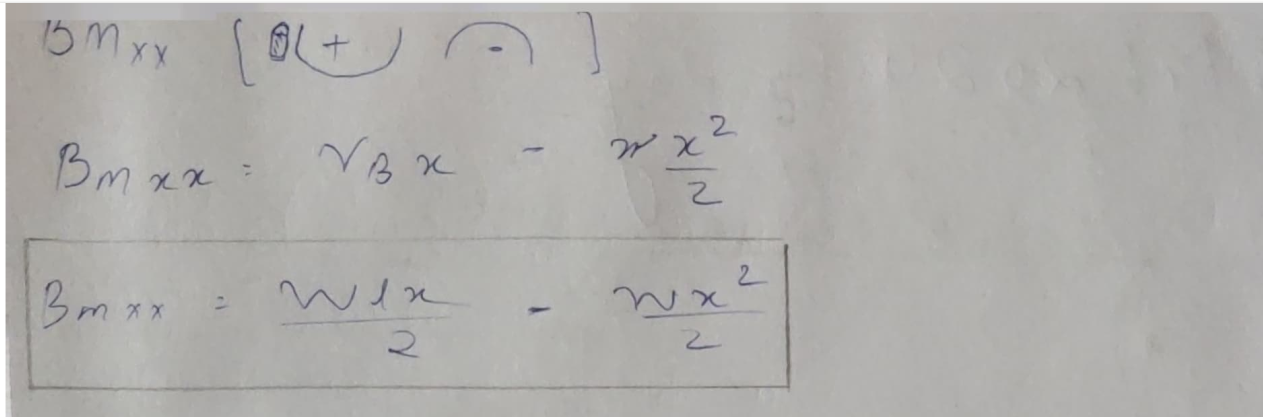 BM xx [ (+) (-) ]
BM xx = VB x - w x²/2
BM xx = wlx/2 - wx²/2